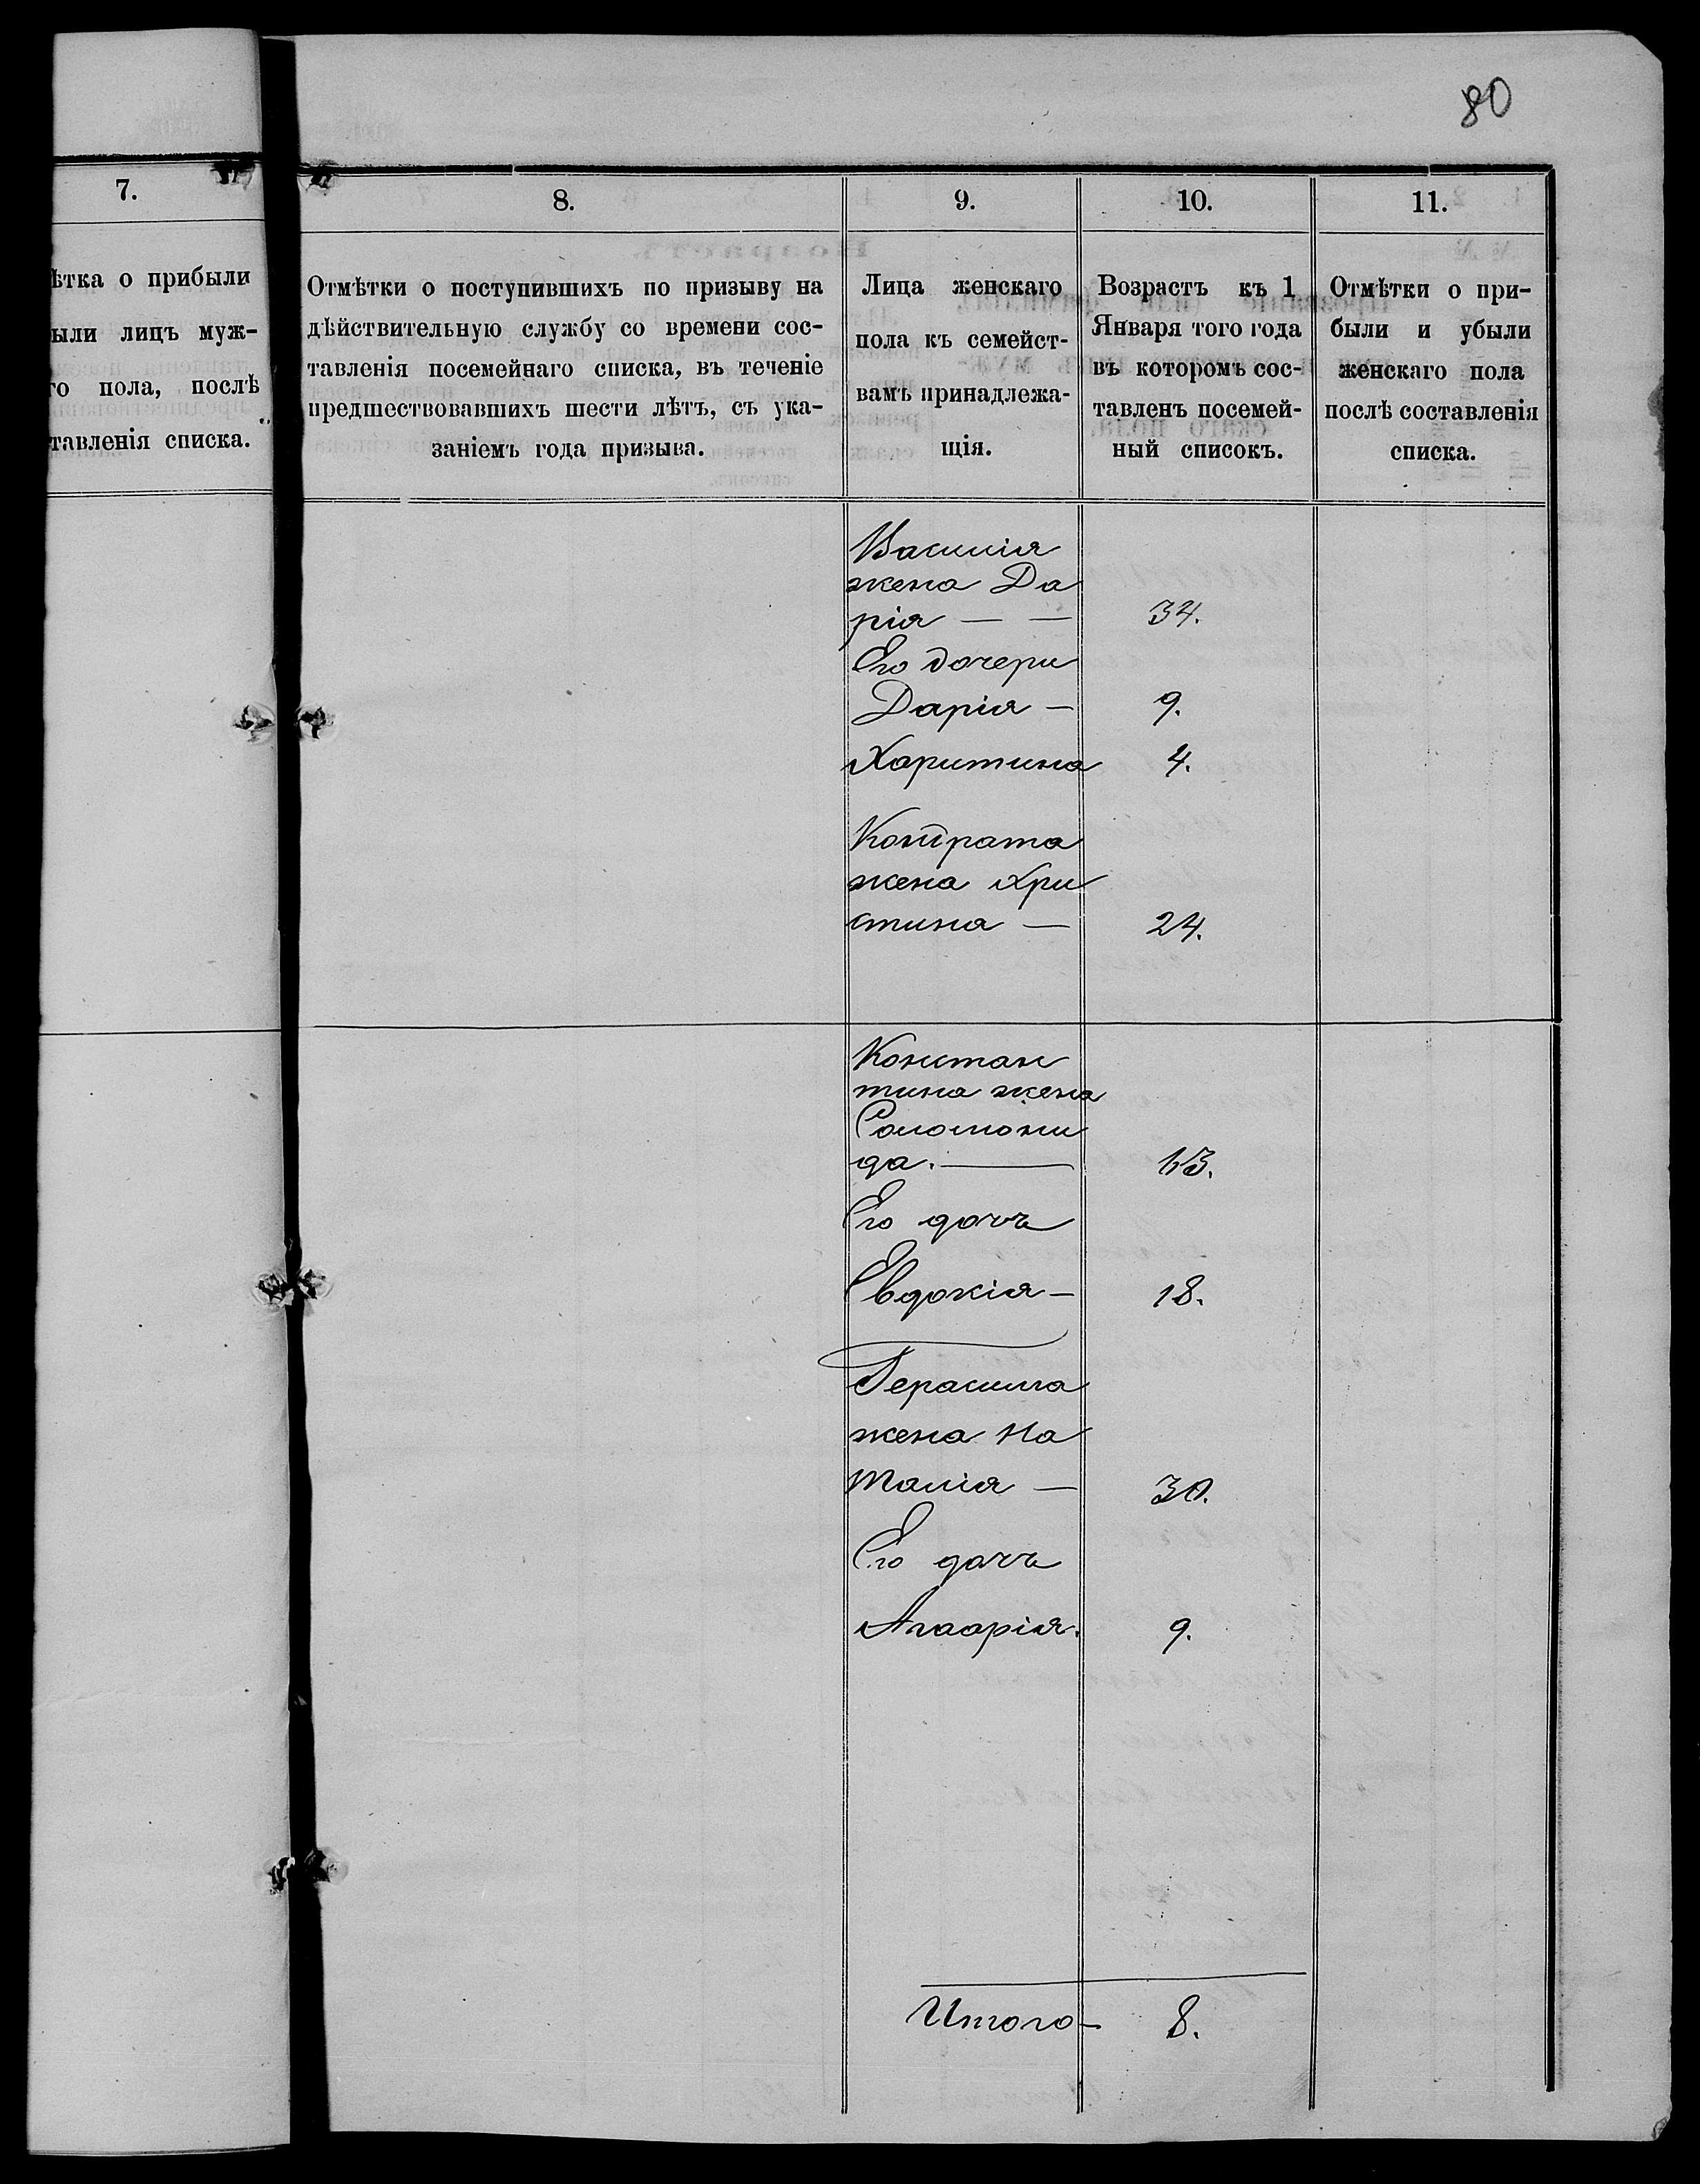 80
7.
ѣтка о прибыли
ыли лицъ муж-
го пола, послѣ
тавленія списка.
8.
Отмѣтки о поступившихъ по призыву на
дѣйствительную службу со времени сос-
тавленія посемейнаго списка, въ теченіе
предшествовавшихъ шести лѣтъ, съ ука-
заніемъ года призыва.
9.
Лица женскаго
пола къ семейст-
вамъ принадлежа-
щія.
10.
Возрастъ къ 1
Января того года
въ которомъ сос-
тавленъ посемей-
ный списокъ.
11.
Отмѣтки о при-
были и убыли
женскаго пола
послѣ составленія
списка.
Василія
жена Да
рія — — 34.
Его дочери
Дарія — 9.
Харитина 4.
Котрата
жена Хри
стина — 24.
Констан
тина жена
Соломони
да. —
Его дочь
Евдокія — 18.
Герасима
жена На
талія — 30.
Его дочь
9.
Итого — 8.